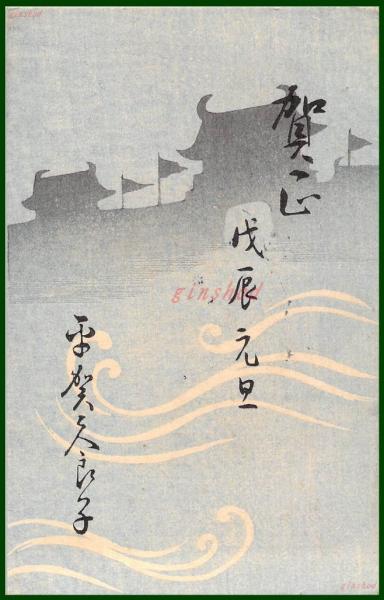 ginshod
賀正
戊辰元旦
ginshod
平賀久良子
ginshod